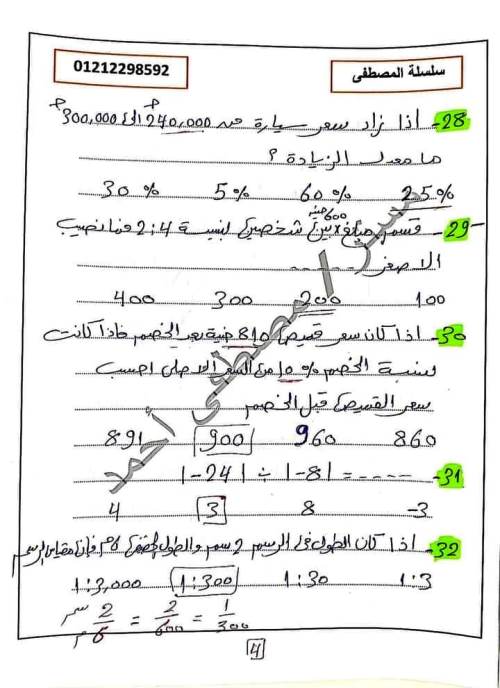 01212298592
سلسلة المصطفى
28- أذا زاد سعر سيارة من 240,000 إلى 300,000
ما معدل الزيادة ؟
25% 60% 5% 30%
29- قسم مبلغ 600 جنيه بين شخصين بنسبة 2:4 فما نصيب
الأصغر -----
100 200 300 400
30- اذا كان سعر قميص 810 جنية بعد الخصم فاذا كانت
نسبة الخصم 10% من السعر الاصلى احسب
سعر القميص قبل الخصم
860 960 900 891
31- |-24| ÷ |-8| = -----
-3 8 3 4
32- اذا كان الطول فى الرسم 2 سم والطول الحقيقى 6م فإن مقياس الرسم
1:3 1:30 1:300 1:3,000
سم 2 / م 6 = 2/600 = 1/300
4
مستر / مصطفى أحمد